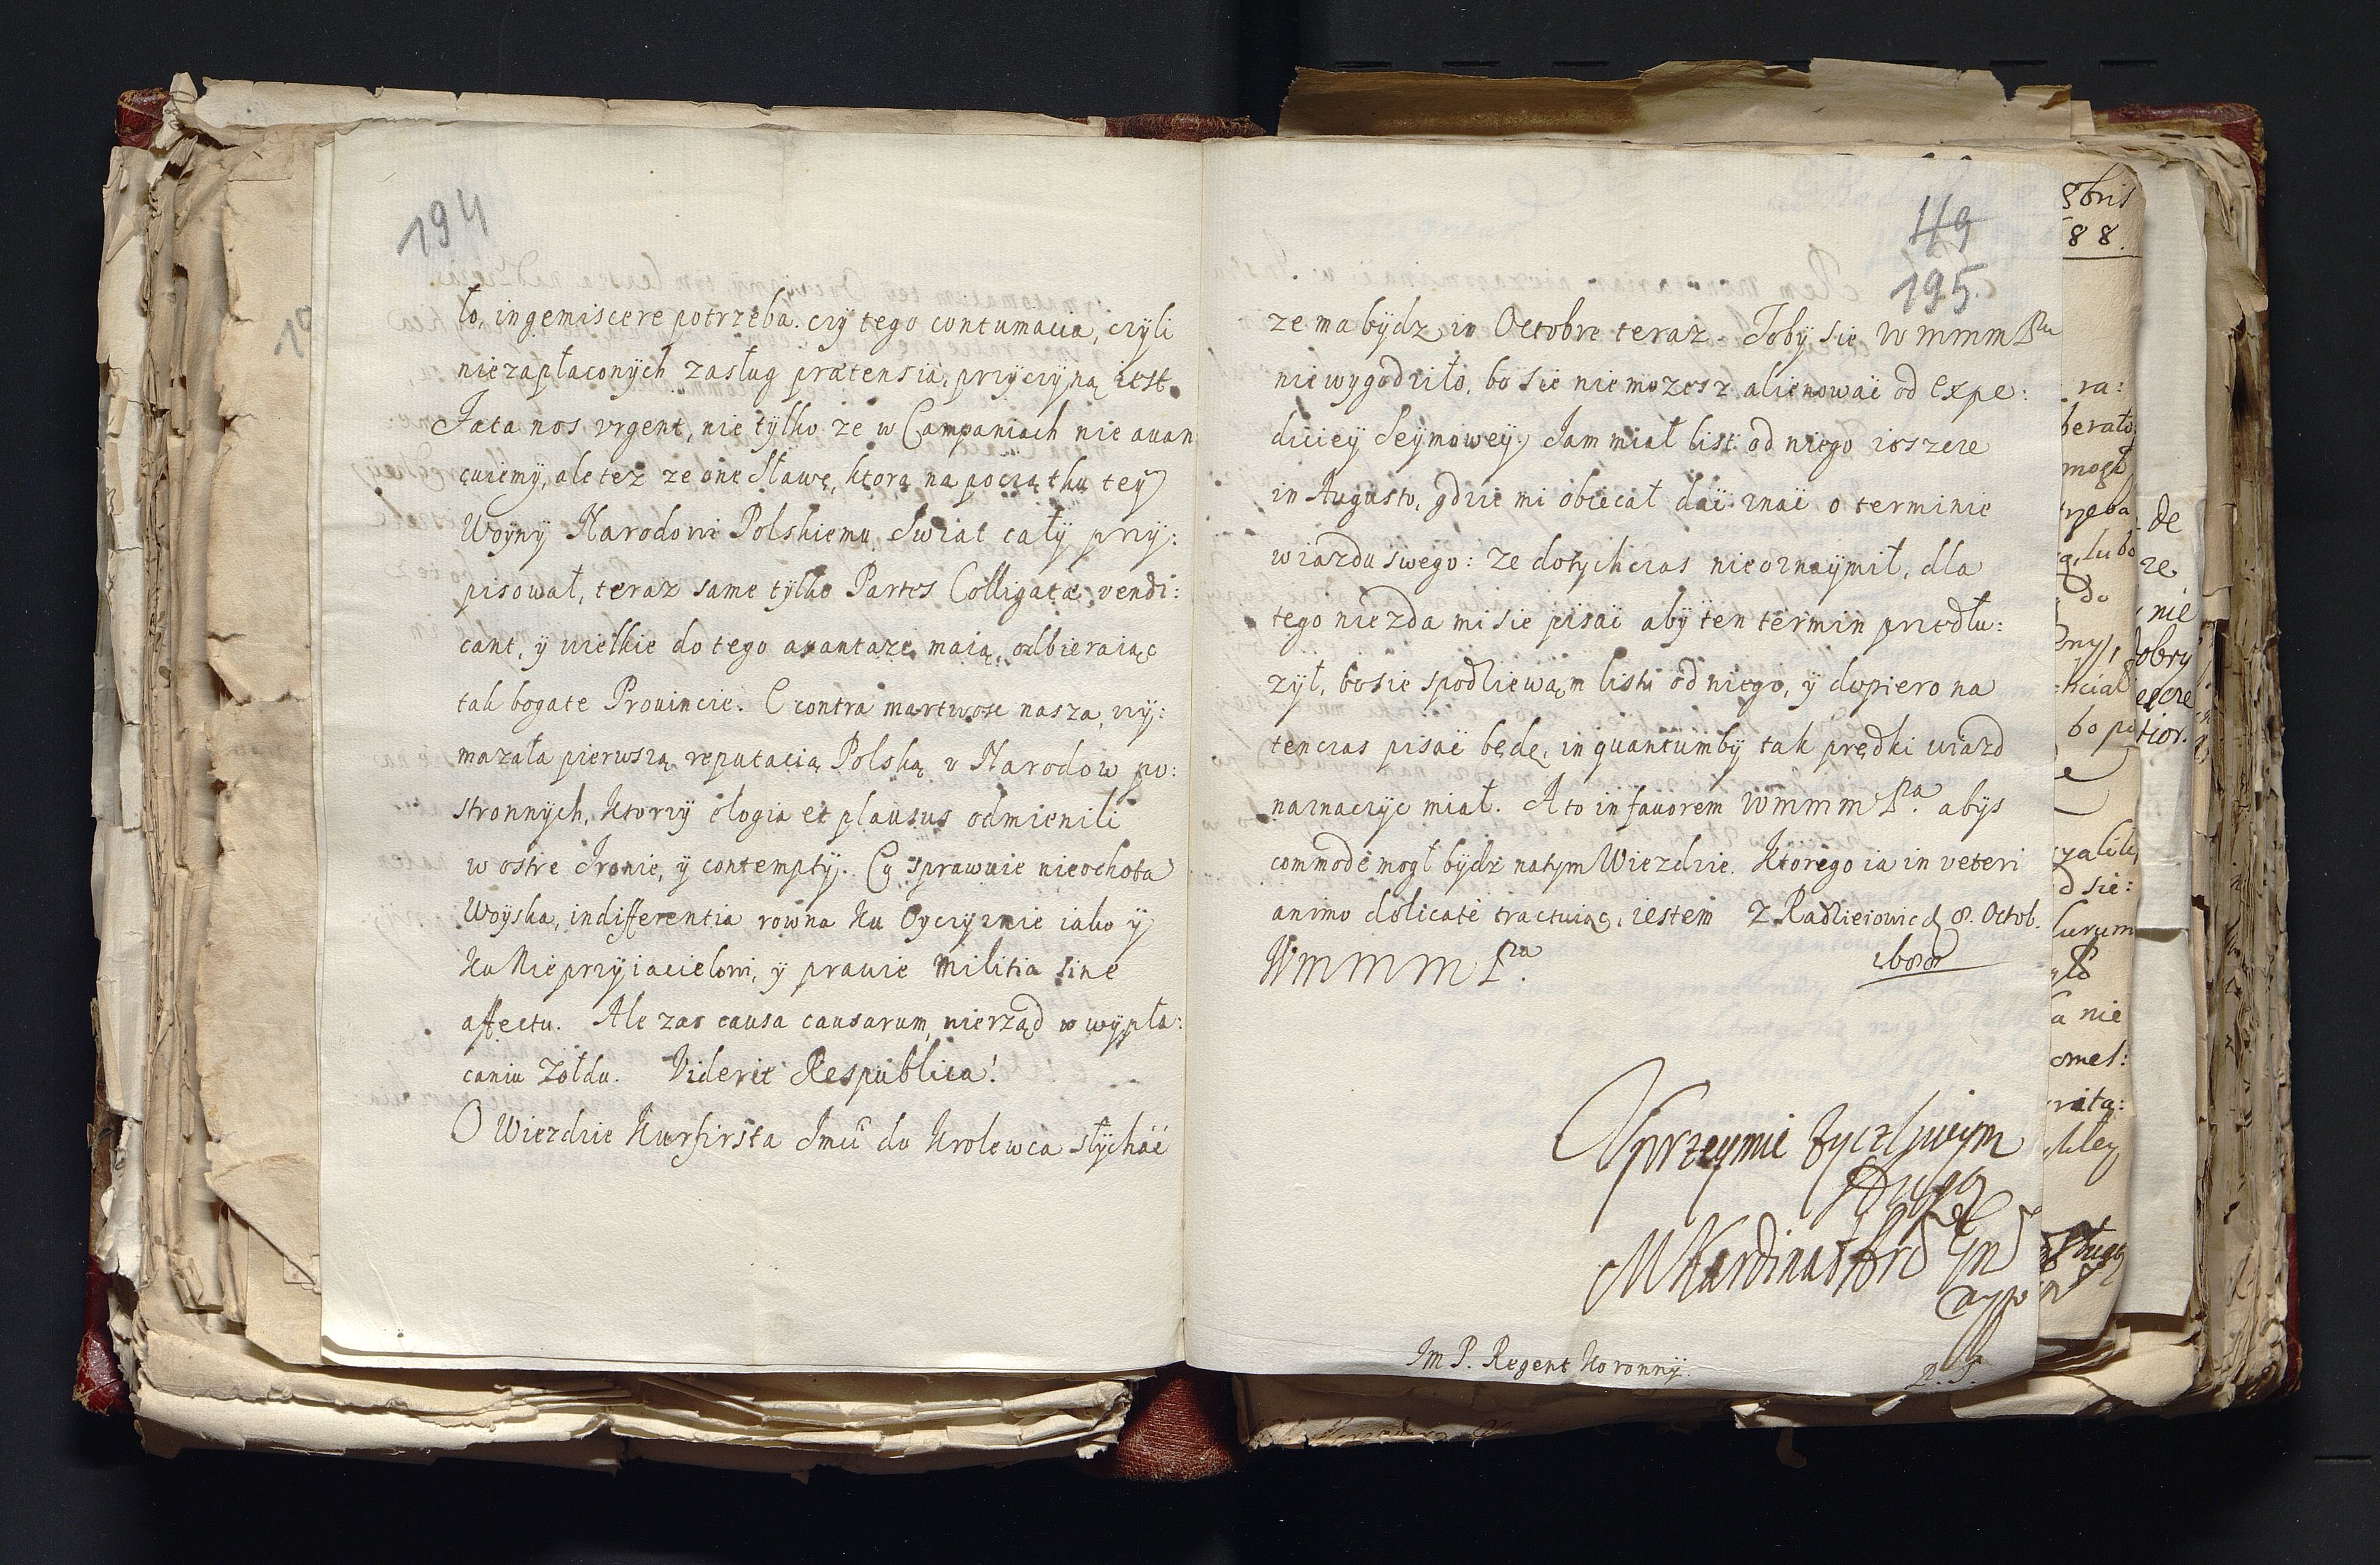 194
to, ingemiscere potrzeba. czy tego contumacia, czyli
niezapłaconych zasług prætensia, przyczyną iest.
Fata nos vrgent, nie tylko ze w Campaniach nie auan
çuiemy, ale tez ze one Sławę, ktorą na początku tey
Woyny Narodowi Polskiemu Swiat cały przy:
pisował, teraz same tylko Partes Colligatæ vendi:
cant, y wielkie do tego auantaze maią, odbieraiąc
tak bogate Prouincie. E contra martwosc nasza, wy:
mazała pierwszą reputacią Polską v Narodow po:
stronnych, ktorzy elogia et plausus odmienili
w ostre Ironie, y contempty. Co sprawuie nieochota
Woyska, indifferentia rowna ku Oyczyznie iako y
ku Nieprzyiacielowi, y prawie militia sine
affectu. Ale zas causa causarum, nierząd w wypła:
caniu Zołdu. Viderit Respublica!
O Wiezdzie Kurfirsta Imci do Krolewca słychać
49
195.
ze ma bydz in Octobre teraz. Toby sie W mmm Pnu
niewygodziło, bo sie niemozesz alienować od Expe:
diciey Seymowey. Iam miał list od niego ieszcze
in Augusto, gdzie mi obiecał dać znać o terminie
wiazdu swego: ze dotychczas nieoznaymił, dla
tego niezda mi sie pisać aby ten termin przedłu:
zył, bo sie spodziewam listu od niego, y dopiero na
tenczas pisać będę, in quantumby tak prędki wiazd
naznaczyc miał. A to in fauorem Wmmm Pna abys
commodè mogł bydz natym Wiezdzie. Ktorego ia in veteri
animo delicatè tractuiąc, iestem z Radzieiowic d 8. Octob.
Wmmm Pna. 1688
Vprzeymie zyczliwym
Sługą
M Kardinał
Im P. Regent Koronny.
P. S.